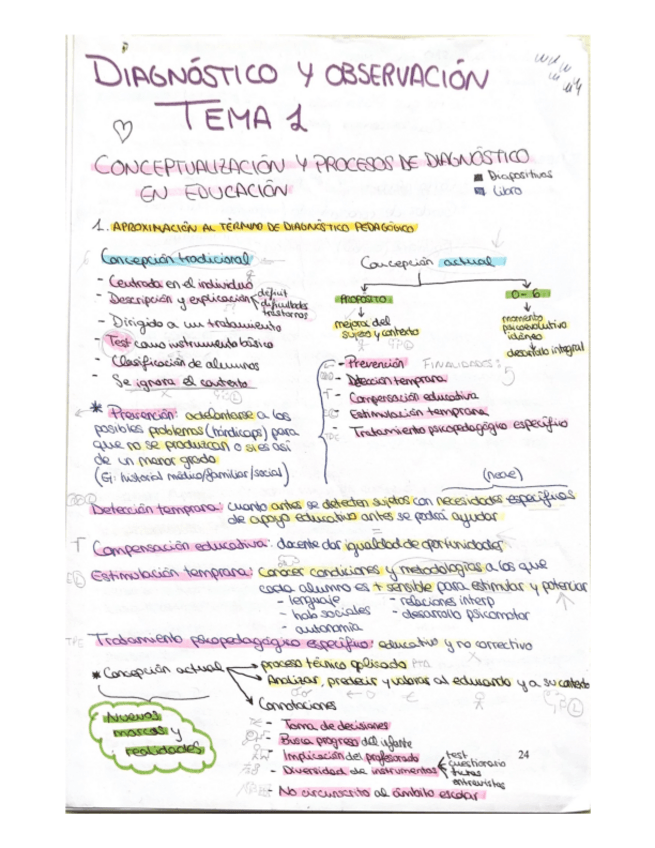 DIAGNÓSTICO Y OBSERVACIÓN
TEMA 1
CONCEPTUALIZACIÓN Y PROCESOS DE DIAGNÓSTICO
EN EDUCACIÓN
Diapositivas
Libro
1. APROXIMACIÓN AL TÉRMINO DE DIAGNÓSTICO PEDAGÓGICO
Concepción tradicional
- Centrada en el individuo
- Descripción y explicación
déficit
dificultades
trastornos
- Dirigido a un tratamiento
- Test como instrumento básico
- Clasificación de alumnos
- Se ignora el contexto
Concepción actual
PROPÓSITO
mejora del
sujeto y contexto
0-6
momento
psicoevolutivo
idóneo
desarrollo integral
FINALIDADES: 5
- Prevención
- Detección temprana
- Compensación educativa
- Estimulación temprana
- Tratamiento psicopedagógico específico
* Prevención: adelantarse a los
posibles problemas (hándicaps) para
que no se produzcan o si es así
de un menor grado
(Ej: historial médico/familiar/social)
(neae)
Detección temprana: cuanto antes se detecten sujetos con necesidades específicas
de apoyo educativo antes se podrá ayudar
T Compensación educativa: docente dar igualdad de oportunidades
Estimulación temprana: Conocer condiciones y metodologías a los que
cada alumno es + sensible para estimular y potenciar
- lenguaje
- hab sociales
- autonomía
- relaciones interp
- desarrollo psicomotor
TPE Tratamiento psicopedagógico específico: educativo y no correctivo
* Concepción actual
proceso técnico aplicado PTA
Analizar, predecir y valorar al educando y a su contexto
Connotaciones
Nuevos
marcos y
realidades
- Toma de decisiones
- Busca progreso del infante
- Implicación del profesorado
- Diversidad de instrumentos
test
cuestionario
fichas
entrevistas
- No circunscrito al ámbito escolar
24